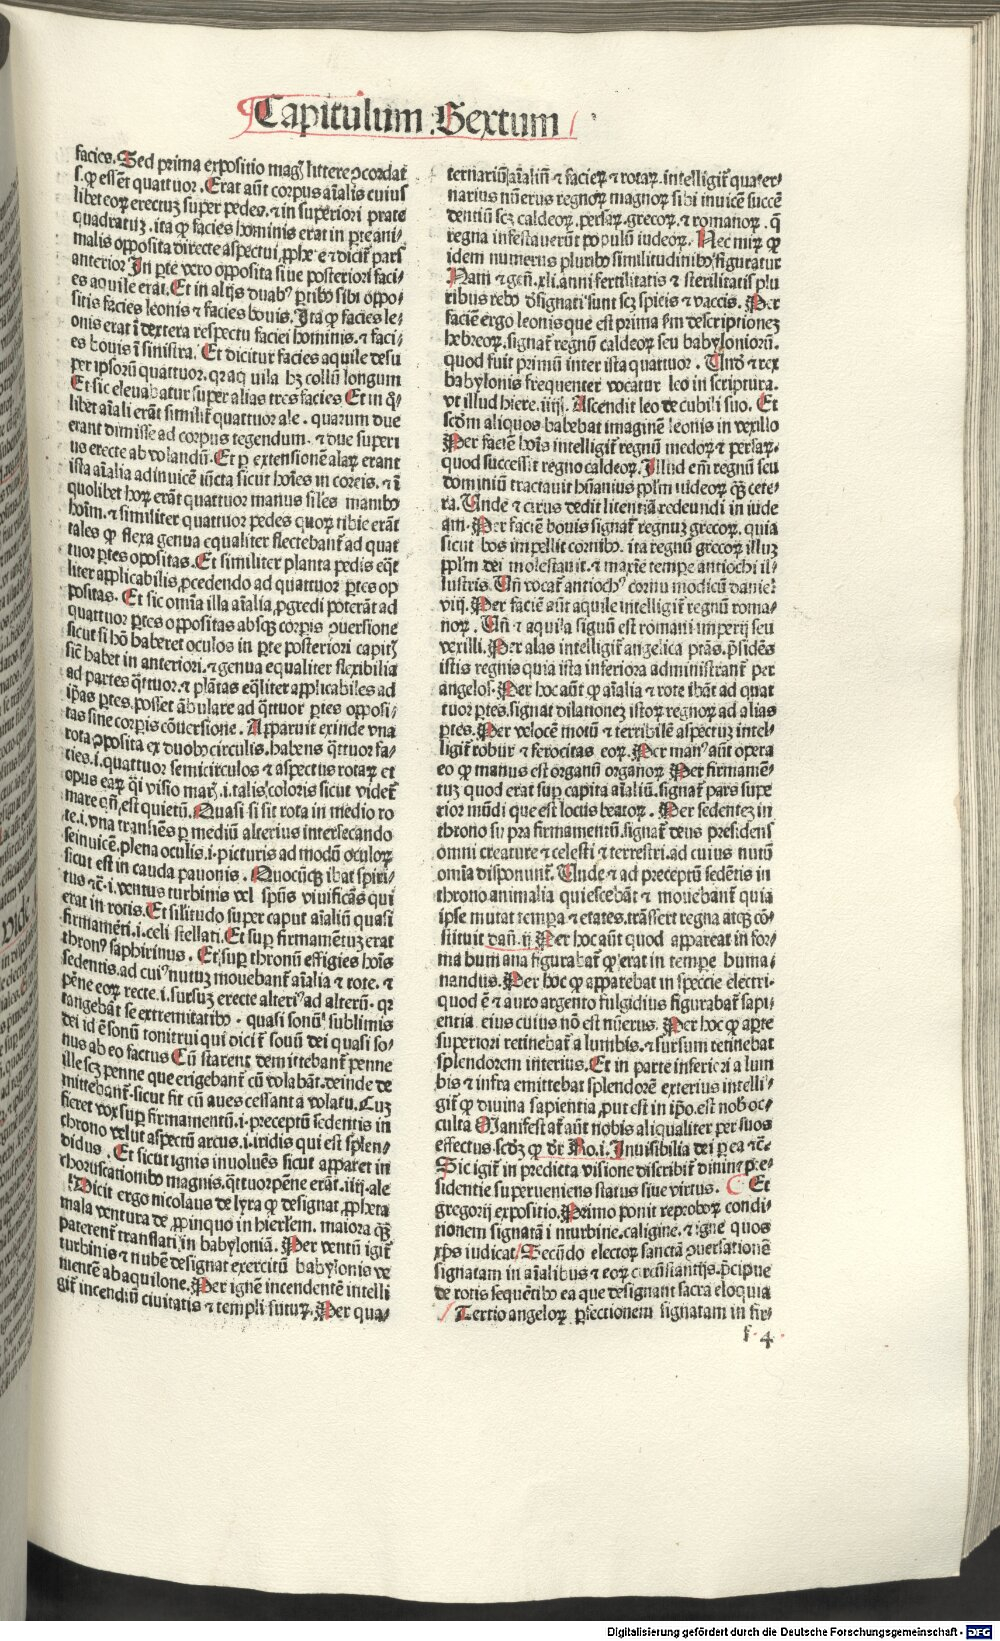 Capitulum Sextum
facies. Sed prima expositio magꝭ littere ꝯcordat̃
s. ꝙ essẽt quattuor. Erat aũt corpus aĩalis cuius
libet eoꝝ erectuꝫ super pedes. ⁊ in superiori parte
quadratuꝫ. ita ꝙ facies hominis erat in ꝑte ani⸗
malis opposita directe aspectui ꝓphe. e ⁊ dicit̃ pars
anterior In ꝑte vero opposita siue posteriori faci⸗
es aquile erat. Et in alijs duabꝰ ꝑtibꝰ sibi oppo⸗
sitis facies leonis ⁊ facies bouis. Ita ꝙ facies le⸗
onis erat ĩ dextera respectu faciei hominis. ⁊ faci⸗
es bouis ĩ sinistra. Et dicitur facies aquile desu
per ipsorũ quattuor. qꝛ aquila hꝫ collũ longum
Et sic eleuabatur super alias tres facies Et in q̃⸗
libet aĩali erãt similit̃ quattuor ale. quarum due
erant dimisse ad corpus tegendum. ⁊ due superi
us erecte ad volandũ. Et ꝑ extensionẽ alaꝝ erant
ista aĩalia adinuicẽ iũcta sicut hoĩes in coreis. ⁊ ĩ
quolibet hoꝝ erãt quattuor manus siles manibꝰ
hoĩm. ⁊ similiter quattuor pedes quoꝝ tibie erãt
tales ꝙ flexa genua equaliter flectebant̃ ad quat
tuor ꝑtes oppositas. Et similiter planta pedis eq̃t
liter applicabilis ꝓcedendo ad quattuor ꝑtes op
positas. Et sic om̃ia illa aĩalia ꝓgredi poterãt ad
quattuor ꝑtes oppositas absqꝫ corꝑis ꝯuersione
sicut si hõ haberet oculos in ꝑte posteriori capitꝭ
sic̃ habet in anteriori. ⁊ genua equaliter flexibilia
ad partes q̃ttuor. ⁊ plãtas eq̃liter applicabiles ad
ip̃as ꝑtes. posset ãbulare ad q̃ttuor ꝑtes opposi⸗
tas sine corꝑis cõuersione. Apparuit exinde vna
rota ꝯposita ex duobꝰ circulis. habens q̃ttuor fa⸗
cies. i. quattuor semicirculos ⁊ aspectus rotaꝝ et
opus eaꝝ q̃i visio marꝭ. i. talis coloris sicut videt̃
mare qñ est quietũ. Quasi si sit rota in medio ro
te. i. vna trãsiẽs ꝑ mediũ alterius intersecando
seinuicẽ. plena oculis. i. picturis ad modũ oculoꝝ
sicut est in cauda pauonis. Quocũqꝫ ibat spiri⸗
tus ⁊c̃. i. ventus turbinis vel spũs viuificãs qui
erat in rotis. Et silitudo super caput aĩaliũ quasi
firmamẽti. i. celi stellati. Et suꝑ firmamẽtuꝫ erat
thronꝰ saphirinus. Et suꝑ thronũ effigies hoĩs
sedentis. ad cuiꝰ nutuꝫ mouebant̃ aĩalia ⁊ rote. ⁊
pẽne eoꝝ recte. i. sursuꝫ erecte alteriꝰ ad alterũ. qꝛ
tangebãt se extremitatibꝰ. quasi sonũ sublimis
dei id ẽ sonũ tonitrui qui dicit̃ sonũ dei quasi so⸗
nus ab eo factus Cũ starent demittebant̃ penne
ille scꝫ penne que erigebant̃ cũ volabãt. deinde de
mittebant̃. sicut fit cũ aues cessant a volatu. Cuꝫ
fieret vox suꝑ firmamẽtũ. i. preceptũ sedentis in
throno velut aspectũ arcus. i. iridis qui est splen⸗
didus. Et sicut ignis inuoluẽs sicut apparet in
choruscationibꝰ magnis. q̃ttuor pẽne erãt. iiij. ale
Dicit ergo nicolaus de lyra ꝙ designat̃ ꝓpheta
mala ventura de ꝓpinquo in hierl̃em. maiora qꝫ
paterent̃ translati in babyloniã. Per ventũ igit̃
turbinis ⁊ nubẽ designat̃ exercitũ babylonis ve
nientẽ ab aquilone. Per ignẽ incendentẽ intelli
git̃ incendiũ ciuitatis ⁊ templi futuꝝ. Per qua⸗
ternariũ aĩaliũ ⁊ facieꝝ ⁊ rotaꝝ. intelligit̃ quater⸗
narius nũerus regnoꝝ magnoꝝ sibi inuicẽ succẽ
dentiũ scꝫ caldeoꝝ. persaꝝ. grecoꝝ. ⁊ romanoꝝ. q̃
regna infestauerũt populũ iudeoꝝ. Nec miꝝ ꝙ
idem numerus pluribꝰ similitudinibꝰ figuratur
Nam ⁊ geñ. xli. anni fertilitatis ⁊ sterilitatis plu
ribus rebꝰ designati sunt scꝫ spicis ⁊ vaccis. Per
faciẽ ergo leonis que est prima s̃m descriptioneꝫ
hebreoꝝ. signat̃ regnũ caldeoꝝ seu babylonioꝝ.
quod fuit primũ inter ista quattuor. Uñ ⁊ rex
babylonis frequenter vocatur leo in scriptura.
vt illud hiere. iiij. Ascendit leo de cubili suo. Et
scd̃m aliquos habebat imaginẽ leonis in vexillo
Per faciẽ hoĩs intelligit̃ regnũ medoꝝ ⁊ persaꝝ.
quod successit regno caldeoꝝ. Illud em̃ regnũ seu
dominiũ tractauit hũanius pp̃lm iudeoꝝ qꝫ cete⸗
ra. Unde ⁊ cirus dedit licentiã redeundi in iude
am. Per faciẽ bouis signat̃ regnuꝫ grecoꝝ. quia
sicut bos impellit cornibꝰ. ita regnũ grecoꝝ illuꝫ
pp̃lm dei molestauit. ⁊ maxie tempe antiochi il⸗
lustris. Uñ vocat̃ antiochꝰ cornu modicũ daniel̃
viij. Per faciẽ aũt aquile intelligit̃ regnũ roma⸗
noꝝ. Uñ ⁊ aquila signũ est romani imperij seu
vexilli. Per alas intelligit̃ angelica ptãs. p̃sidẽs
istis regnis quia ista inferiora administrant̃ per
angelos. Per hoc aũt ꝙ aĩalia ⁊ rote ibãt ad quat
tuor ꝑtes. signat̃ dilationeꝫ istoꝝ regnoꝝ ad alias
ꝑtes. Per velocẽ motũ ⁊ terribilẽ aspectuꝫ intel⸗
ligit̃ robur ⁊ ferocitas eoꝝ. Per manꝰ aũt opera
eo ꝙ manus est organũ organoꝝ Per firmamẽ⸗
tuꝫ quod erat suꝑ capita aĩaliũ. signat̃ pars supe
rior mũdi que est locus beatoꝝ. Per sedenteꝫ in
throno supra firmamentũ. signat̃ deus presidens
omni creature ⁊ celesti ⁊ terrestri. ad cuius nutũ
om̃ia disponunt̃. Unde ⁊ ad preceptũ sedẽtis in
throno animalia quiescebãt ⁊ mouebant̃ quia
ipse mutat tempa ⁊ etates. trãsfert regna atqꝫ cõ⸗
stituit dañ. ij. Per hoc aũt quod appareat in for⸗
ma humana figurabat̃ ꝙ erat in tempe huma⸗
nandus. Per hoc ꝙ apparebat in speccie electri⸗
quod ẽ ⁊ auro argento fulgidius figurabat̃ sapi⸗
entia eius cuius nõ est nũerus. Per hoc ꝙ a ꝑte
superiori retinebat̃ a lumbis. ⁊ sursum retinebat
splendorem interius. Et in parte inferiori a lum
bis ⁊ infra emittebat splendorẽ exterius intelli⸗
git̃ ꝙ diuina sapientia ꝓut est in ip̃o. est nobꝭ oc⸗
culta Manifestat̃ aũt nobis aliqualiter per suos
effectus. scd̃ꝫ ꝙ dr̃ Ro. i. Inuisibilia dei ꝑ ea ⁊c̃.
Sic igit̃ in predicta visione discribit̃ diuine p̃e⸗
sidentie superueniens status siue virtus. Et
gregorij expositio. Primo ponit reproboꝝ condi⸗
tionem signatam in turbine. caligine. ⁊ igne quos
xp̃s iudicat/ Secũdo electoꝝ sanctã ꝯuersationẽ
signatam in aĩalibus ⁊ eoꝝ circũstantijs. p̃cipue
de rotis sequẽtibꝰ ea que designant sacra eloquia
Tertio angeloꝝ ꝑfectionem signatam in fir⸗
f 4
Digitalisierung gefördert durch die Deutsche Forschungsgemeinschaft - DFG